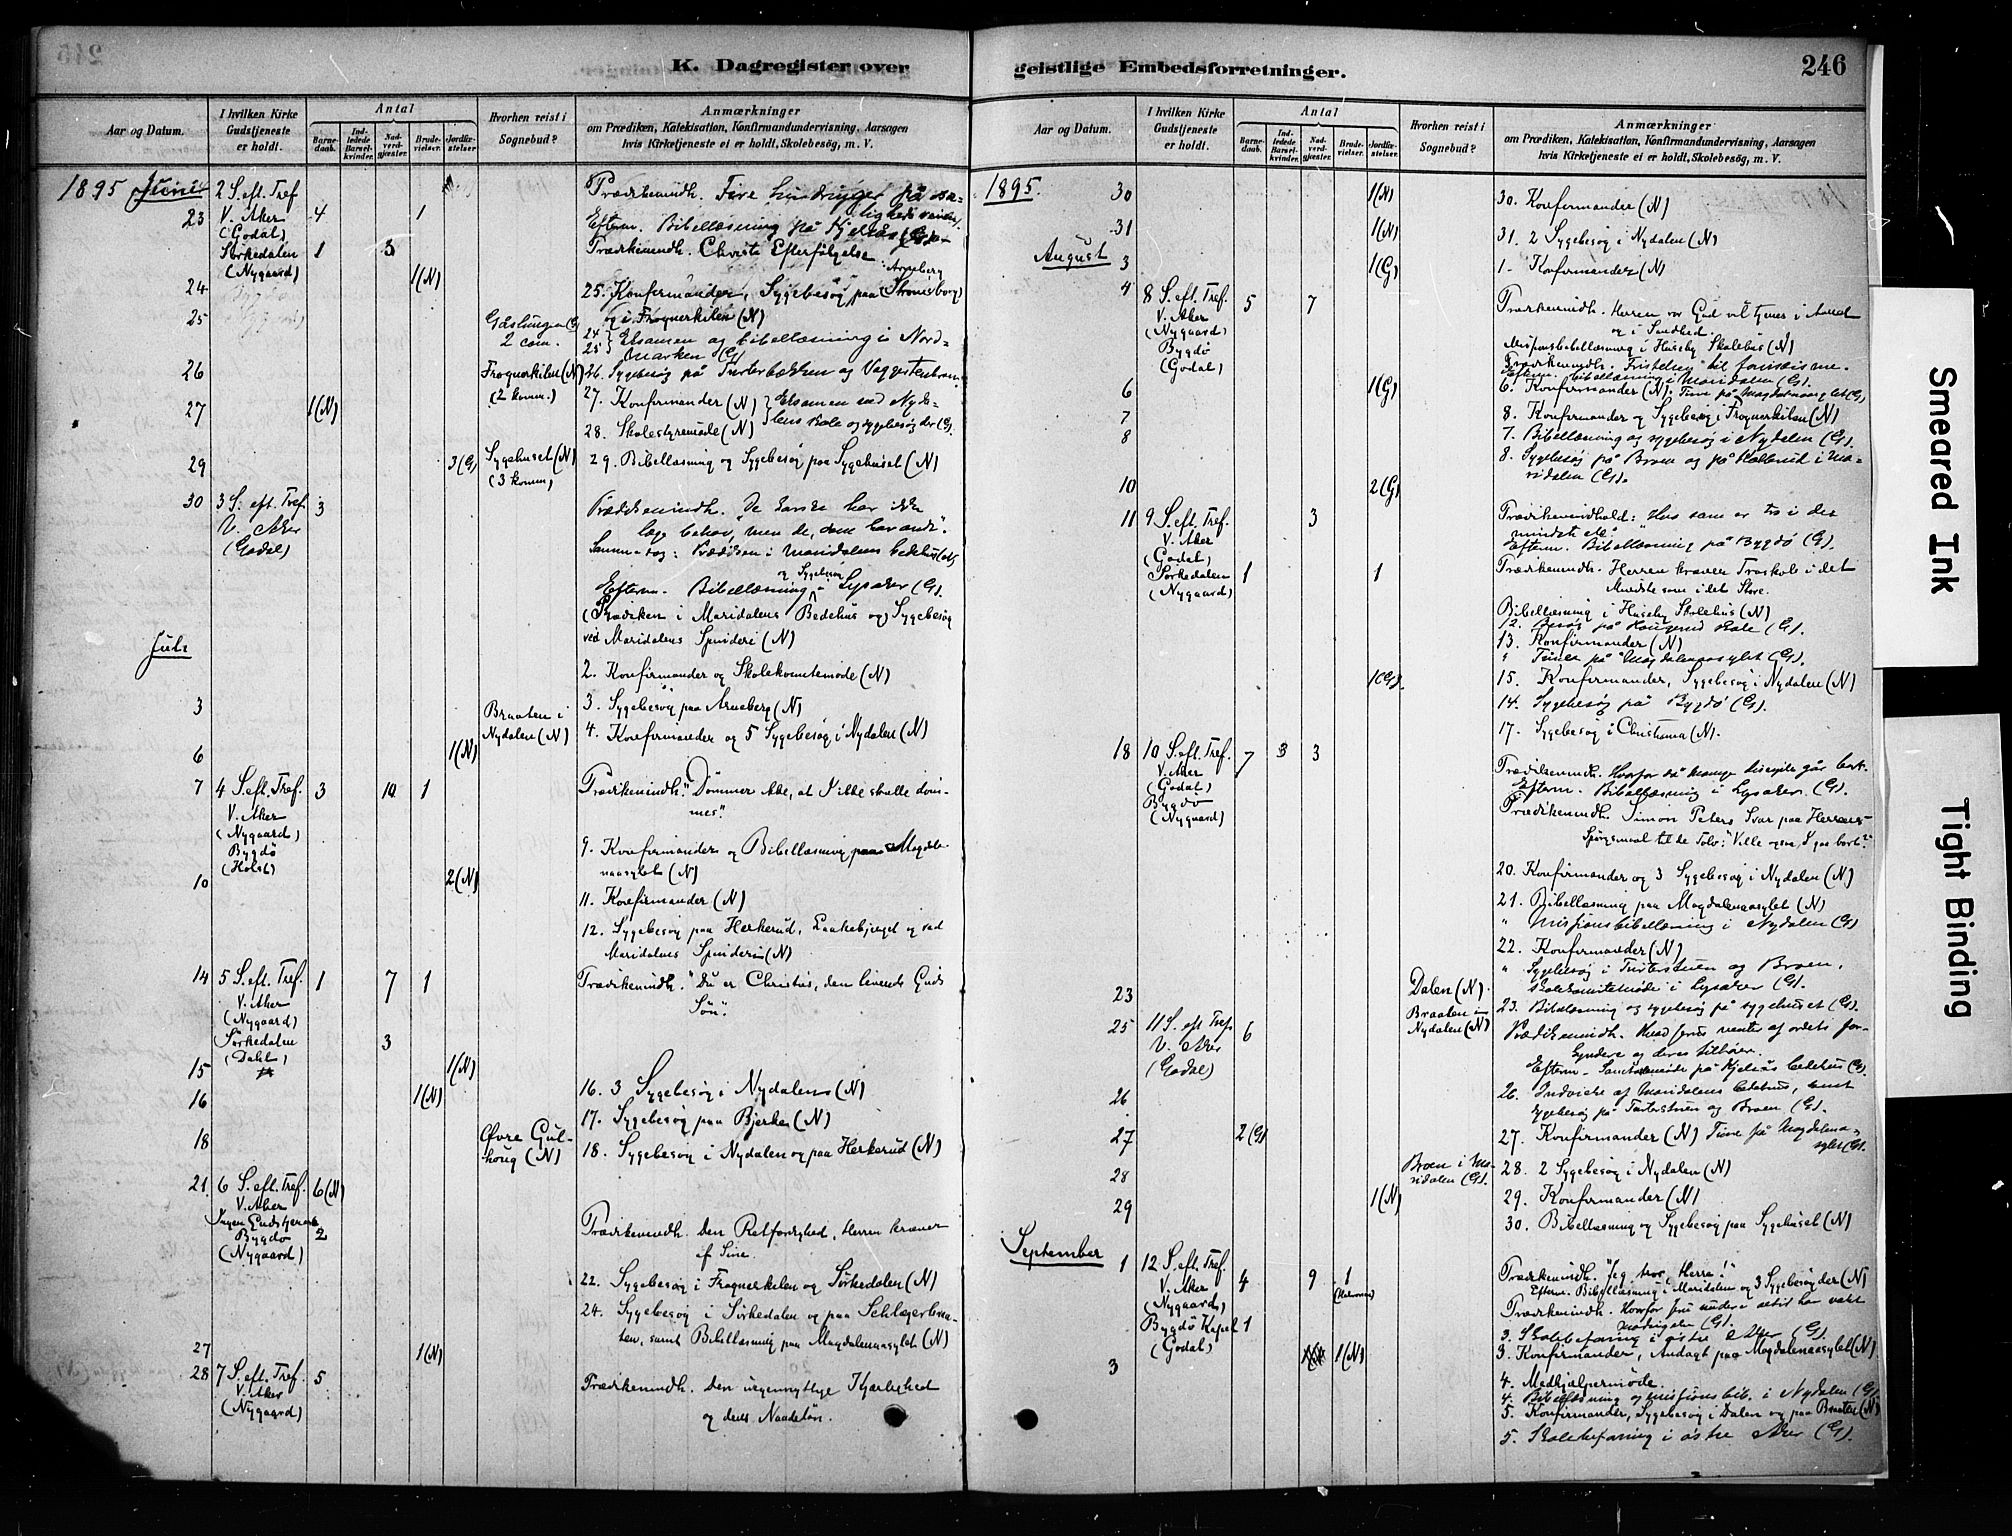 K. Dagregister over
Aar og Datum.
I hvilken Kirke
Gudstjeneste
er holdt.
Antal
Barne-
daab.
Ind-
ledede
Barsel-
kvinder.
Nad-
verd-
gjæster.
Brude-
vielser.
Jordfæ-
stelser
Hvorhen reist i
Sognebud?
Anmærkninger
om Prædiken, Katekisation, Konfirmandundervisning, Aarsagen
hvis Kirketjeneste ei er holdt, Skolebesög, m. V.
1895 Juni
23
2 S. eft. Tref
V. Aker
(Godal)
4
1
Prædikenindh. Fire hindringer på
Efterm. Bibellæsning på Kjelsås
Sørkedalen
(Nygaard)
1
3
Prædikenindh. Christi Efterfølgelse
24
1(N)
25. Konfirmander, Sygebesøg paa
Arneberg
og i Frognerkilen (N)
25
2 com.
24
25 } Eksamen og bibellæsning i Nord-
marken (G)
26
Frognerkilen (N)
(2 komm.)
26. Sygebesøg på
27
1(N)
27. Konfirmander (N) } Eksamen ved Nyda-
lens skole og sygebesøg der (G).
28. Skolestyremøde (N)
29
3(G)
Sygehuset (N)
(3 komm)
29. Bibellæsning og Sygebesøg paa Sygehuset (N)
30
3 S. eft. Tref
V. Aker
(Godal)
3
Prædikenindh. De karske har ikke
læge behov, men de, som har ondt".
Efterm. Bibellæsning og Sygebesøg Lysaker (G).
(Prædiken i Maridalens Bedehus og) Sygebesøg
ved Maridalens Spinderi (N)
Juli
2. Konfirmander og Skolekomitemøde (N)
3
Braaten i
Nydalen (N)
3. Sygebesøg paa Arneberg (N)
4. Konfirmander og 5 Sygebesøg i Nydalen (N)
6
1(N)
7
4 S. eft. Tref.
V. Aker
(Nygaard)
Bygdø
(Holst)
3
10
1
Prædikenindh. "Dømmer ikke, at I ikke skulle døm-
mes".
9. Konfirmander og Bibellæsning paa Magda-
naasylet (N)
10
2(N)
11. Konfirmander (N)
12. Sygebesøg paa Herkerud, Laakebjerget og ved
Maridalens Spinderi (N)
14
5 S. eft. Tref.
V. Aker
(Nygaard)
Sørkedalen
(Dahl)
1
7
1
3
Prædikenindh. "Du er Christus, den levende Guds
Søn".
15
1(N)
16
1(N)
16. 3 Sygebesøg i Nydalen (N)
17. Sygebesøg paa Bjerke (N)
18
Øvre Gul-
houg (N)
18. Sygebesøg i Nydalen og paa Herkerud (N)
21
6 S. eft. Tref.
V. Aker
Ingen Gudstjeneste
Bygdø
(Nygaard)
6(N)
2
Prædikenindh. Den Retfærdighed, Herren kræver
af Sine.
22. Sygebesøg i Frognerkilen og Sørkedalen (N)
24. Sygebesøg i Sørkedalen og paa Schlagerbraa-
ten, samt Bibellæsning paa Magdalenaasylet (N)
27
1(N)
28
7 S. eft. Tref
V. Aker
(Nygaard)
5
Prædikenindh. Den uegennyttige Kjærlighed
og dens Naadeløn.
geistlige Embedsforretninger.
246
Aar og Datum.
I hvilken Kirke
Gudstjeneste
er holdt.
Antal
Barne-
daab.
Ind-
ledede
Barsel-
kvinder.
Nad-
verd-
gjæster.
Brude-
vielser.
Jordfæ-
stelser
Hvorhen reist i
Sognebud?
Anmærkninger
om Prædiken, Katekisation, Konfirmandundervisning, Aarsagen
hvis Kirketjeneste ei er holdt, Skolebesög, m. V.
1895.
30
1(N)
30. Konfirmander (N)
31
1(N)
31. 2 Sygebesøg i Nydalen (N)
August
3
1(G)
1. Konfirmander (N)
4
8 S. eft. Tref.
V. Aker
(Nygaard)
Bygdø
(Godal)
5
7
Prædikenindh. Herren vor Gud vil tjenes i Aand
og i Sandhed.
Missionsbibellæsning i Huseby Skolehus (N)
Efterm. bibellæsning i Maridalen (G).
6
1(G)
6. Konfirmander (N). Time på Magdalenaasylet (G)
7
8
8. Konfirmander og Sygebesøg i Frognerkilen (N)
7. Bibellæsning og sygebesøg i Nydalen (G).
8. Sygebesøg på Broen og på Kallerud i Ma-
ridalen (G).
10
2(G)
11
9 S. eft. Tref.
V. Aker
(Godal)
Sørkedalen
(Nygaard)
3
1
1
Prædikenindhold: Hvo som er tro i det
mindste etc.
Efterm. Bibellæsning på Bygdø (G).
Prædikenindh. Herren kræver Troskab i det
Mindste som i det Store.
Bibellæsning i Huseby Skolehus (N)
12. Besøg på Haugerud skole (G).
13. Konfirmander (N)
" Timen på Magdalenaasylet (G).
1(G).
15. Konfirmander, Sygebesøg i Nydalen (N)
14. Sygebesøg på Bygdø (G).
17. Sygebesøg i Christiania (N).
18
10 S. eft. Tref.
V. Aker
(Godal)
Bygdø
(Nygaard)
7
3
3
Prædikenindh. Hvorfor så mange disciple går bort.
Efterm. Bibellæsning i Lysaker (G).
Prædikenindh. Simon Peters Svar paa Herrens
Spørgsmaal til de Tolv: "Ville ogsaa I gaa bort?"
20. Konfirmander og 3 Sygebesøg i Nydalen (N)
21. Bibellæsning paa Magdalenaasylet (N)
" Missionsbibellæsning i Nydalen (G)
22. Konfirmander (N)
" Sygebesøg i Turterstuen og Broen,
skolekomitemøde i Lysaker (G).
23
Dalen (N).
Braaten i
Nydalen (N)
23. Bibellæsning og sygebesøg på sygehuset (G).
25
11 S. eft Tref.
V. Aker
(Godal)
6
Prædikenindh. Hvad Jesus venter af ordets for-
kyndere og deres tilhører.
Efterm. Samtalemøde på Kjelsås bedehus (G).
26
26. Indvielse af Maridalens bedehus, samt
sygebesøg på Turterstuen og Broen (G).
27
2(G)
27. Konfirmander (N) Time på Magdalena-
asylet (G).
28
Broen i Ma-
ridalen (G).
28. 2 Sygebesøg i Nydalen (N)
29
1(N)
29. Konfirmander (N)
30. Bibellæsning og Sygebesøg paa Sygehuset (N)
September
1
12 S. eft. Tref.
V. Aker
(Nygaard)
Bygdø Kapel
(Godal)
4
9
1
1
Prædikenindh. "Jeg tror, Herre!"
Efterm. Bibellæsning i Maridalen og 3 Sygebesøg der (N)
Prædikenindh. Hvorfor Jesu undere altid har vakt
modsigelse (G).
3. Skolebefaring i østre Aker (G).
3
1(N)
3. Konfirmander, Andagt paa Magdalenaasylet (N)
4. Medhjælpermøde.
4. Bibellæsning og missionsbib. i Nydalen (G)
5. Konfirmander, Sygebesøg i Dalen og paa Braaten (N)
5. Skolebefaring i østre Aker (G).
Smeared Ink
Tight Binding